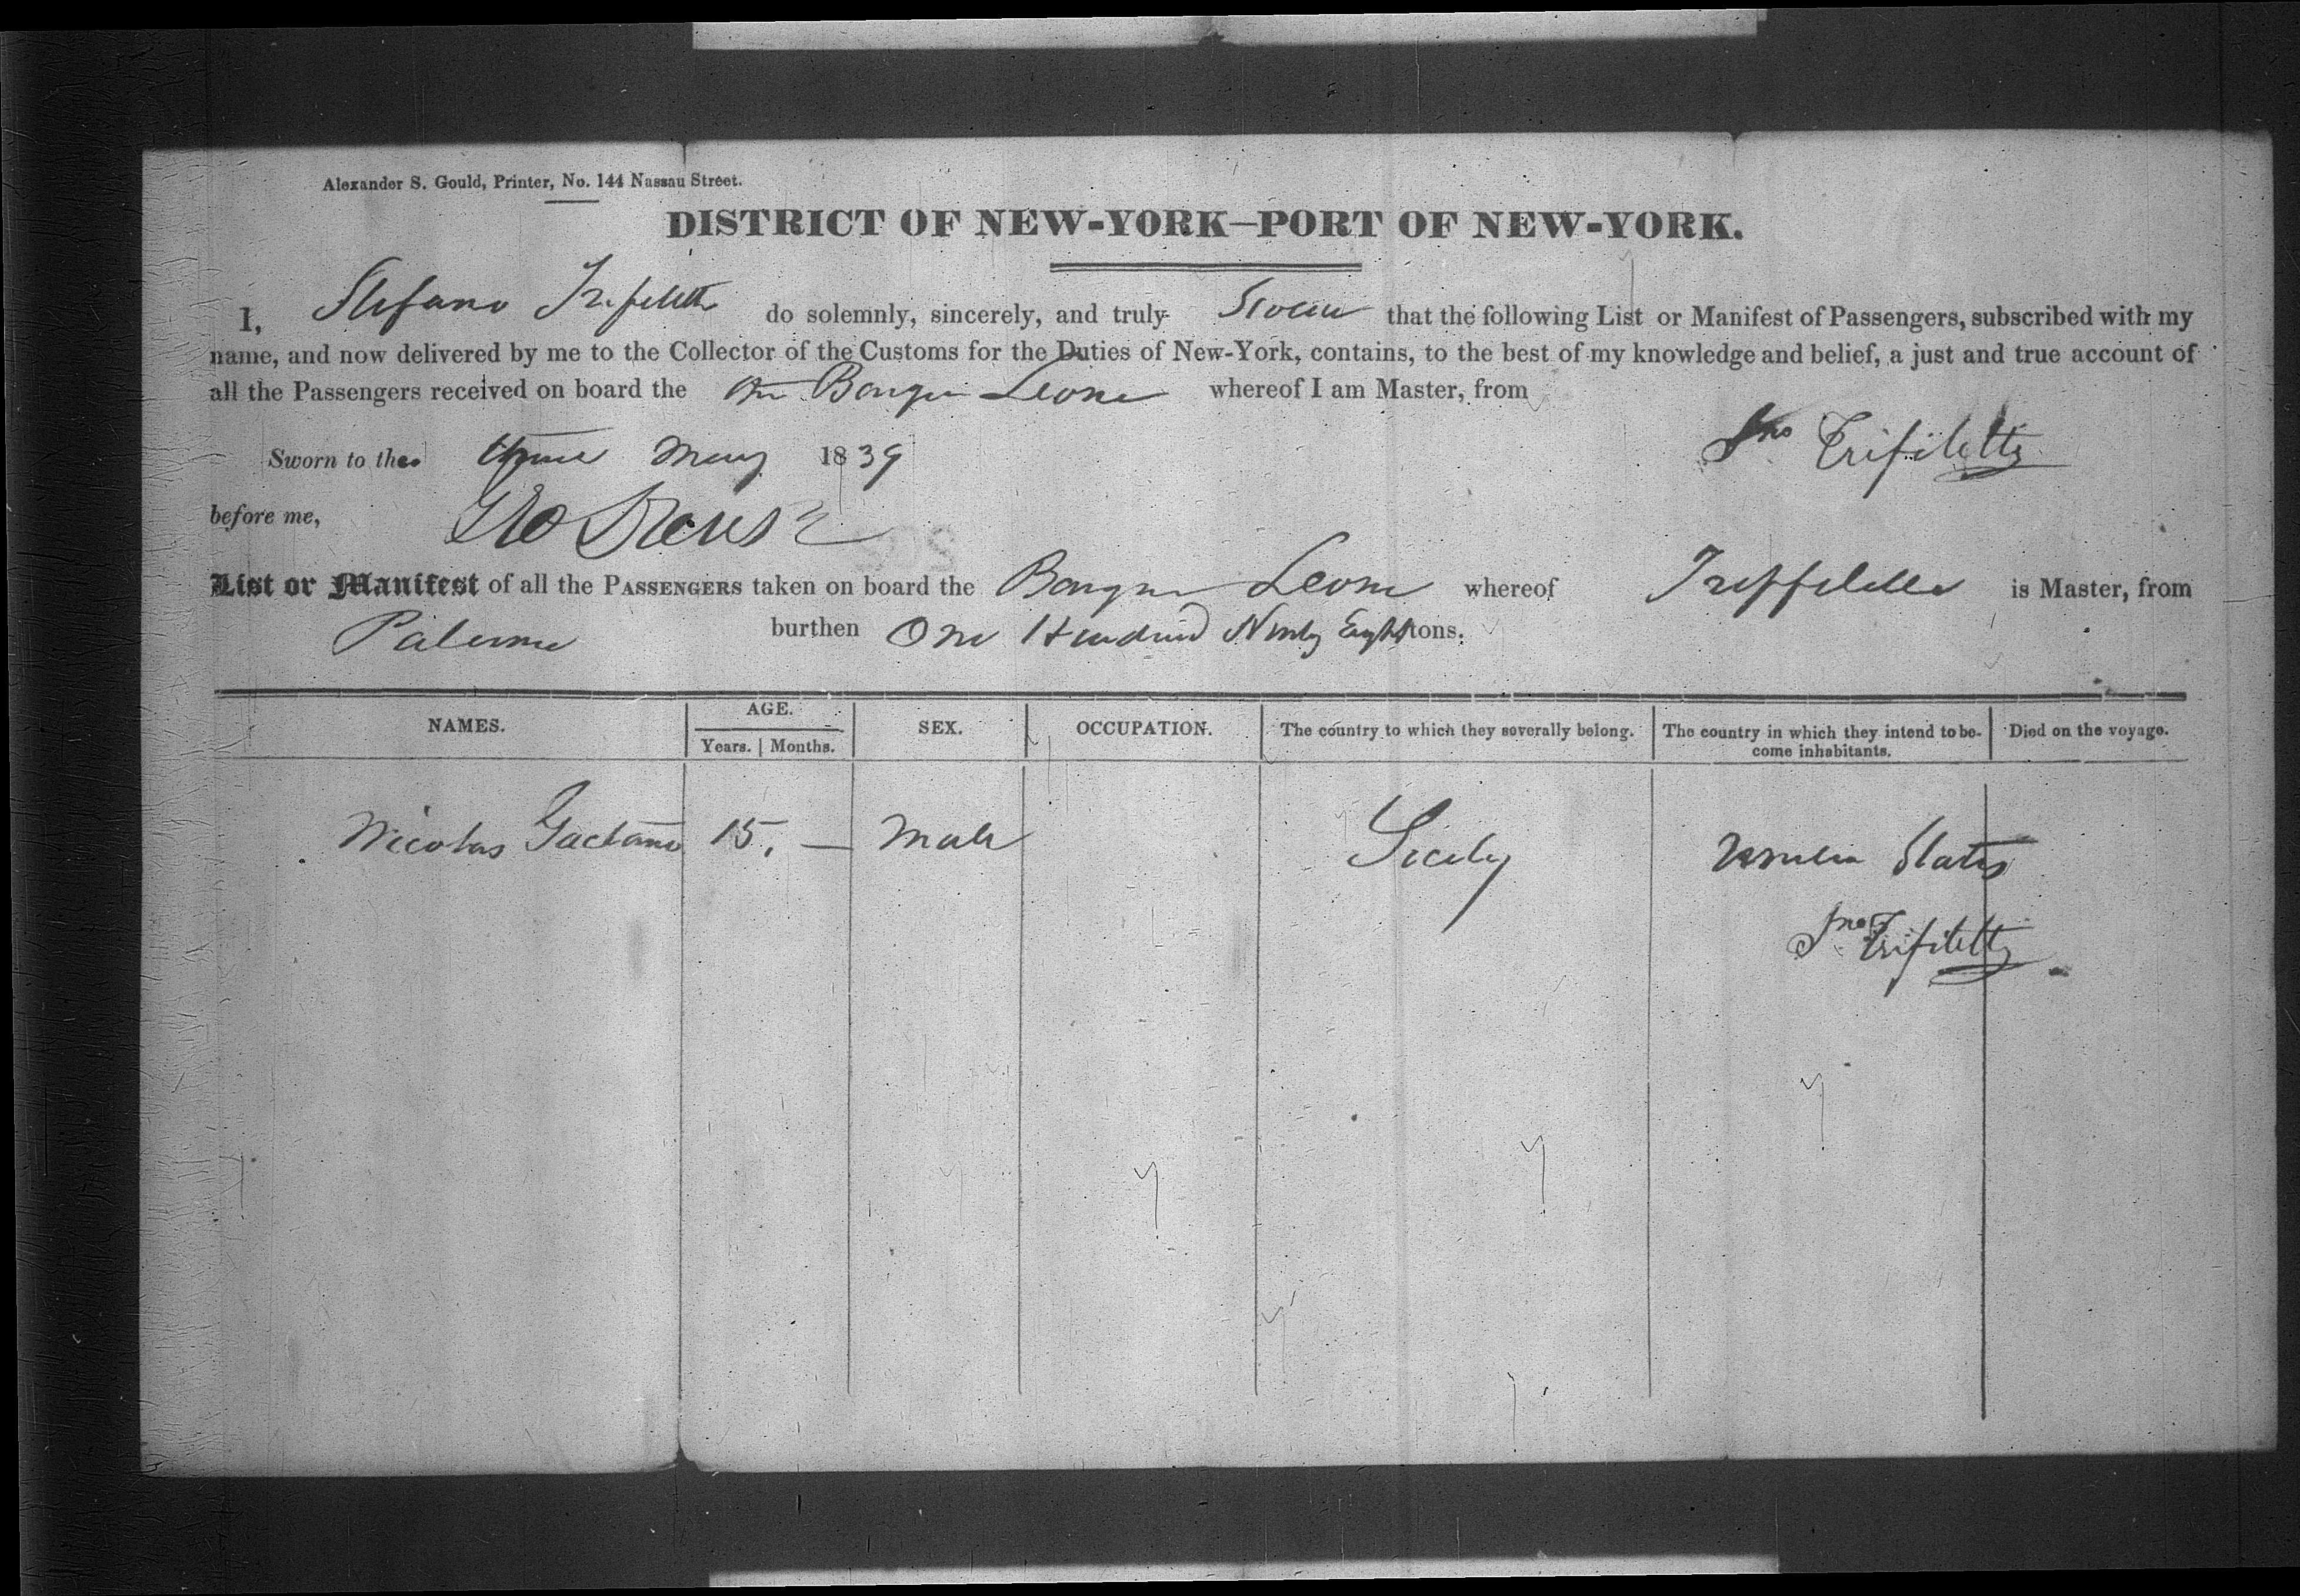 Alexander S. Gould, Printer, No. 144 Nassau Street.
DISTRICT OF NEW-YORK—PORT OF NEW-YORK.
I, Stefano Trifiletti do solemnly, sincerely, and truly Swear that the following List or Manifest of Passengers, subscribed with my
name, and now delivered by me to the Collector of the Customs for the Duties of New-York, contains, to the best of my knowledge and belief, a just and true account of
all the Passengers received on board the Barque Leone whereof I am Master, from
Sworn to the three May 1839
Trifiletti
before me, Geo
List or Manifest of all the PASSENGERS taken on board the Barque Leone whereof Triffeletti is Master, from
Palermo burthen One Hundred Ninty Eight tons.
NAMES. AGE. Years. Months. SEX. OCCUPATION. The country to which they severally belong. The country in which they intend to become inhabitants. Died on the voyage.
Nicolas Gaetano 15. — Male Sicily United States
Trifiletti